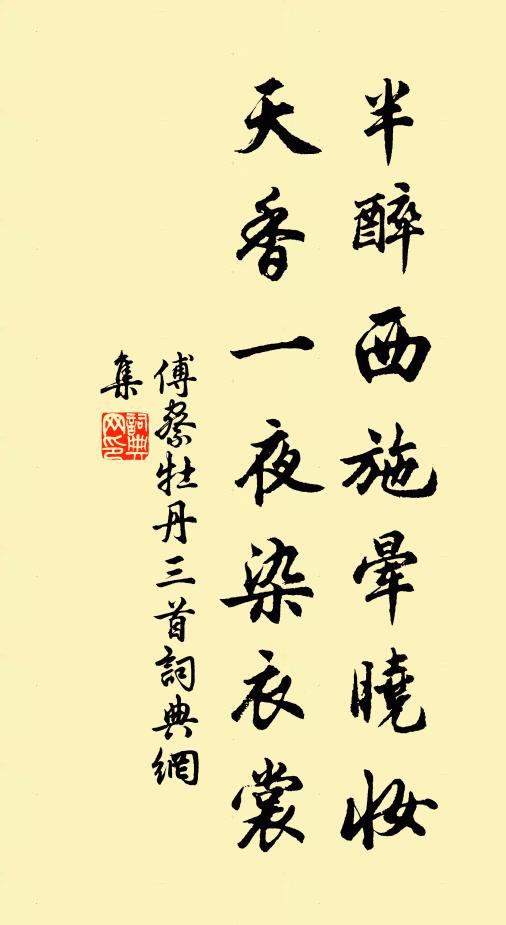 半醉西施暈曉妝
天香一夜染衣裳
傅察牡丹三首詞典網
集
詞典網印